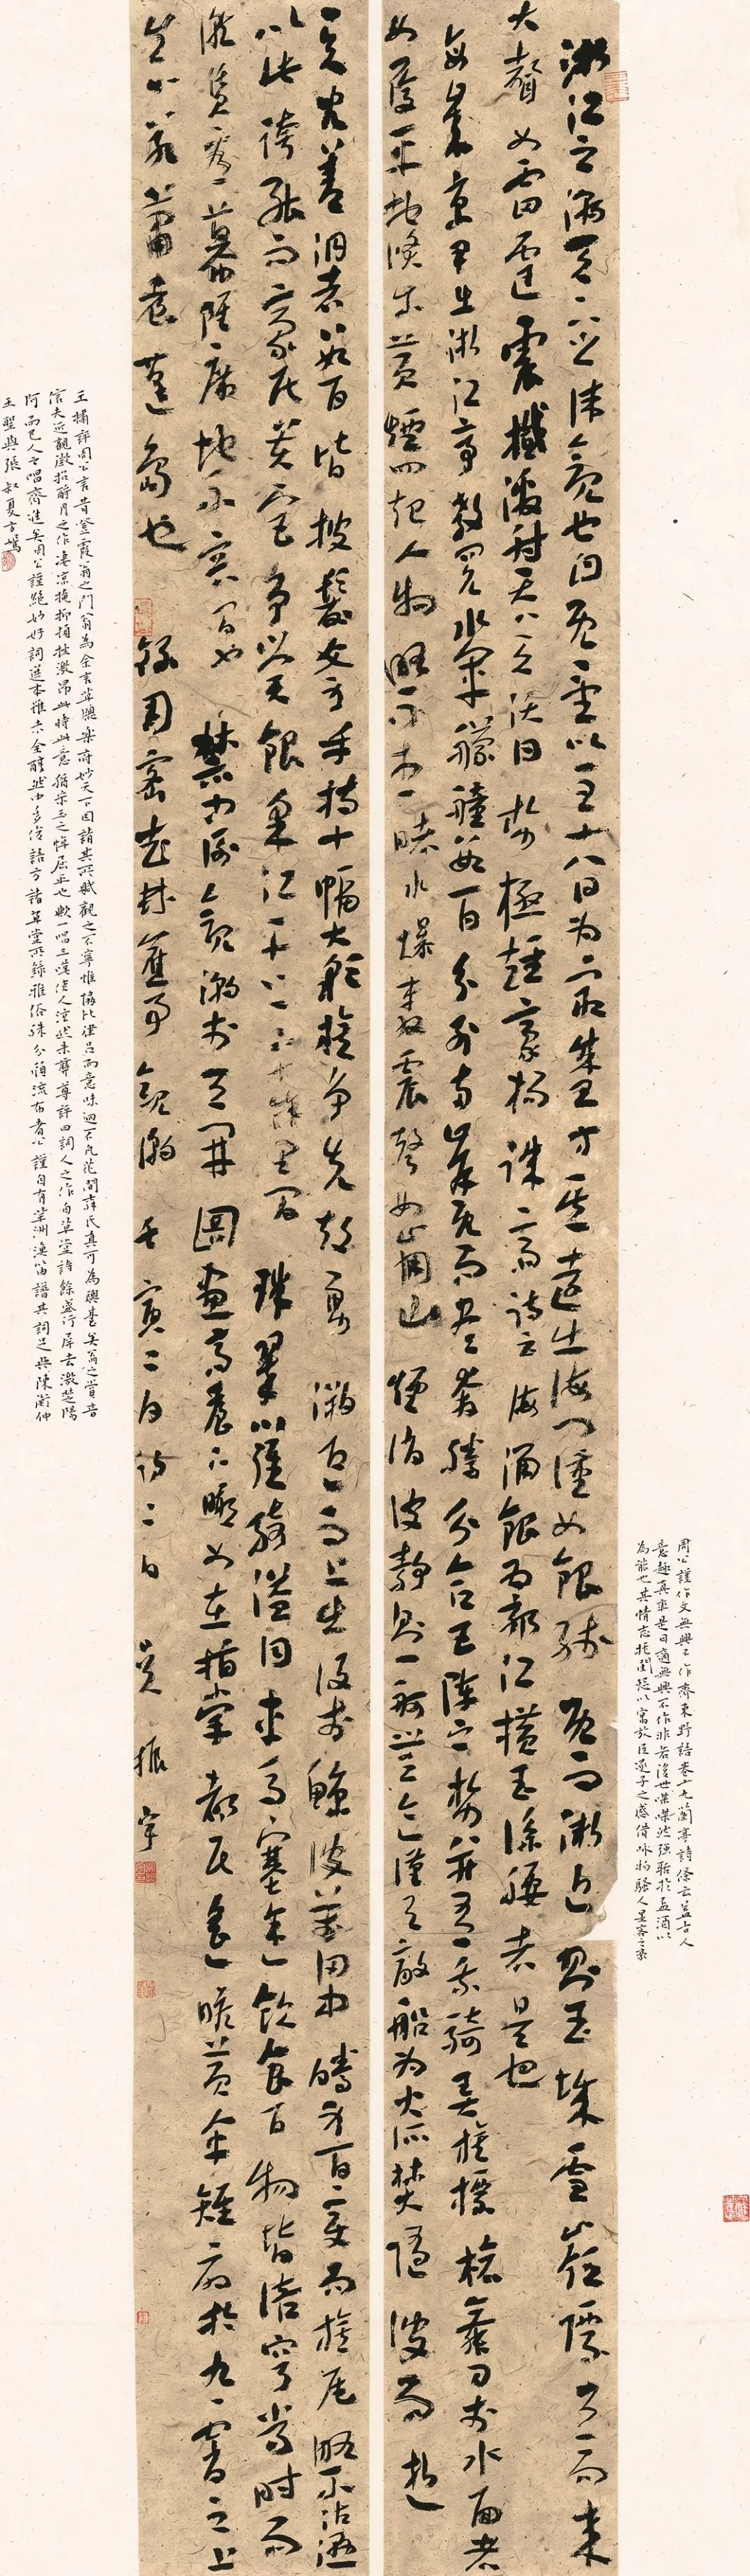 浙江之潮天下之偉觀也自既望以至十八日為最盛方其遠出海門僅如銀綫既而漸近則玉城雪嶺際天而來
大聲如雷霆震撼激射吞天沃日勢極雄豪楊誠齋詩云海涌銀為郭江橫玉系腰者是也
每歲京尹出浙江亭教閱水軍艨艟數百分列兩岸既而盡奔騰分合五陣之勢並有乘騎弄旗標槍舞刀於水面者
如履平地倏爾黃煙四起人物略不相睹水爆轟震聲如崩山煙消波靜則一舸無迹僅有敵船為火所焚隨波而逝
吳兒善泅者數百皆披髮文身手持十幅大彩旗爭先鼓勇溯迎而上出沒於鯨波萬仞中騰身百變而旗尾略不沾濕
以此誇能而豪民貴宦爭賞銀彩江干上下十餘里間珠翠羅綺溢目車馬塞途飲食百物皆倍穹常時而
僦賃看幕雖席地不容間也禁中例觀潮於天開圖畫高臺下瞰如在指掌都民遙瞻黃傘雉扇於九霄之上
真若簫臺蓬島也 錄周密武林舊事觀潮 壬寅二月初二日 吳振宇
周公謹作文無興不作齊東野語卷十九蘭亭詩條云蓋古人
意趣真率是日適無興不作非若後世喋喋然強聒於盃酒以
為能也其情志托閒逸以寓放臣逐子之感借咏物騷人墨客之
王橚評周公言昔登霞翁之門翁為余言草窗樂府妙天下因請其所賦觀之不寧惟協比律呂而意味迥不凡花間柳氏真可為輿臺矣翁之賞音
信夫近觀徵招酹月之作凄涼掩抑頓挫激昂此時此意猶宋玉之悼屈平也歟一唱三嘆使人泫然未尊評四詞人之作自草堂詩餘盛行屏去激楚陽
阿而巴人之唱齊進矣周公謹絕妙好詞選本雖未全醇然中多俊語方諸草堂所錄雅俗殊分顧流布者少公謹自有蘋洲漁笛譜其詞足與陳衡仲
王聖與張叔夏方駕